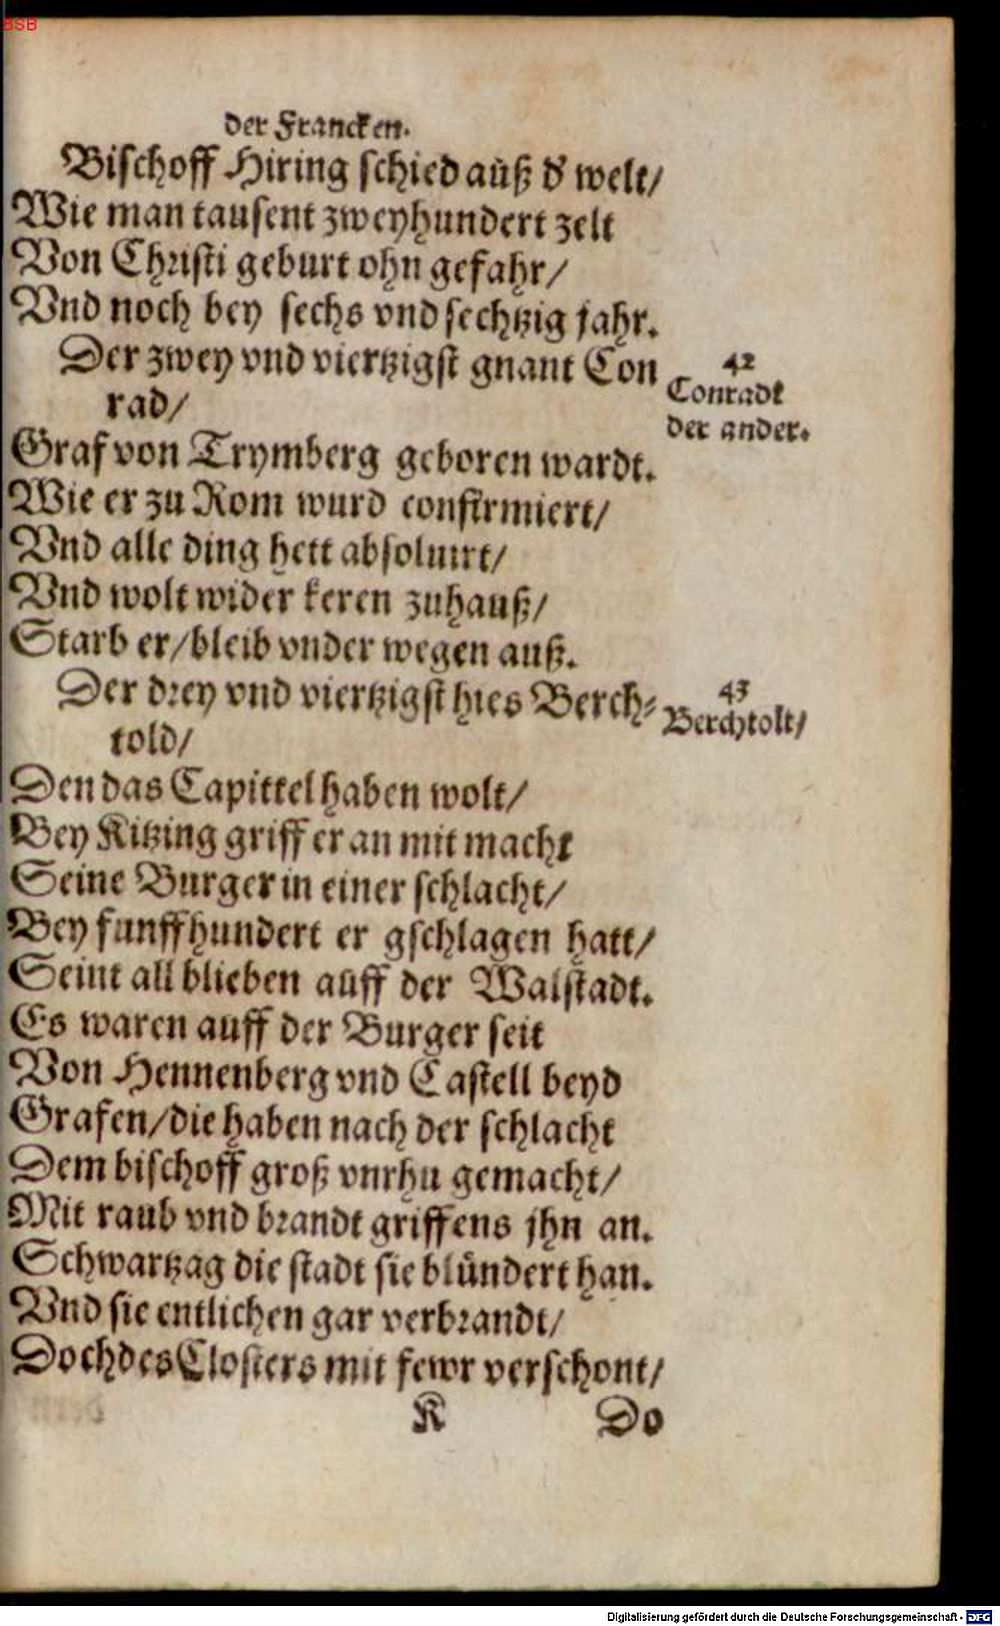 BSB
der Francken.
Bischoff Hiring schied auß d' welt/
Wie man tausent zweyhundert zelt
Von Christi geburt ohn gefahr/
Vnd noch bey sechs vnd sechtzig jahr.
Der zwey vnd viertzigst gnant Con
rad/
42
Conradt
der ander.
Graf von Trymberg geboren wardt.
Wie er zu Rom wurd confirmiert/
Vnd alle ding hett absoluirt/
Vnd wolt wider keren zuhauß/
Starb er/bleib vnder wegen auß.
Der drey vnd viertzigst hies Berch-
told/
43
Berchtolt/
Den das Capittel haben wolt/
Bey Kitzing griff er an mit macht
Seine Burger in einer schlacht/
Bey funffhundert er gschlagen hatt/
Seint all blieben auff der Walstadt.
Es waren auff der Burger seit
Von Hennenberg vnd Castell beyd
Grafen/die haben nach der schlacht
Dem bischoff groß vnrhu gemacht/
Mit raub vnd brandt griffens jhn an.
Schwartzag die stadt sie blündert han.
Vnd sie entlichen gar verbrandt/
Doch des Closters mit fewr verschont/
K Do
Digitalisierung gefördert durch die Deutsche Forschungsgemeinschaft - DFG